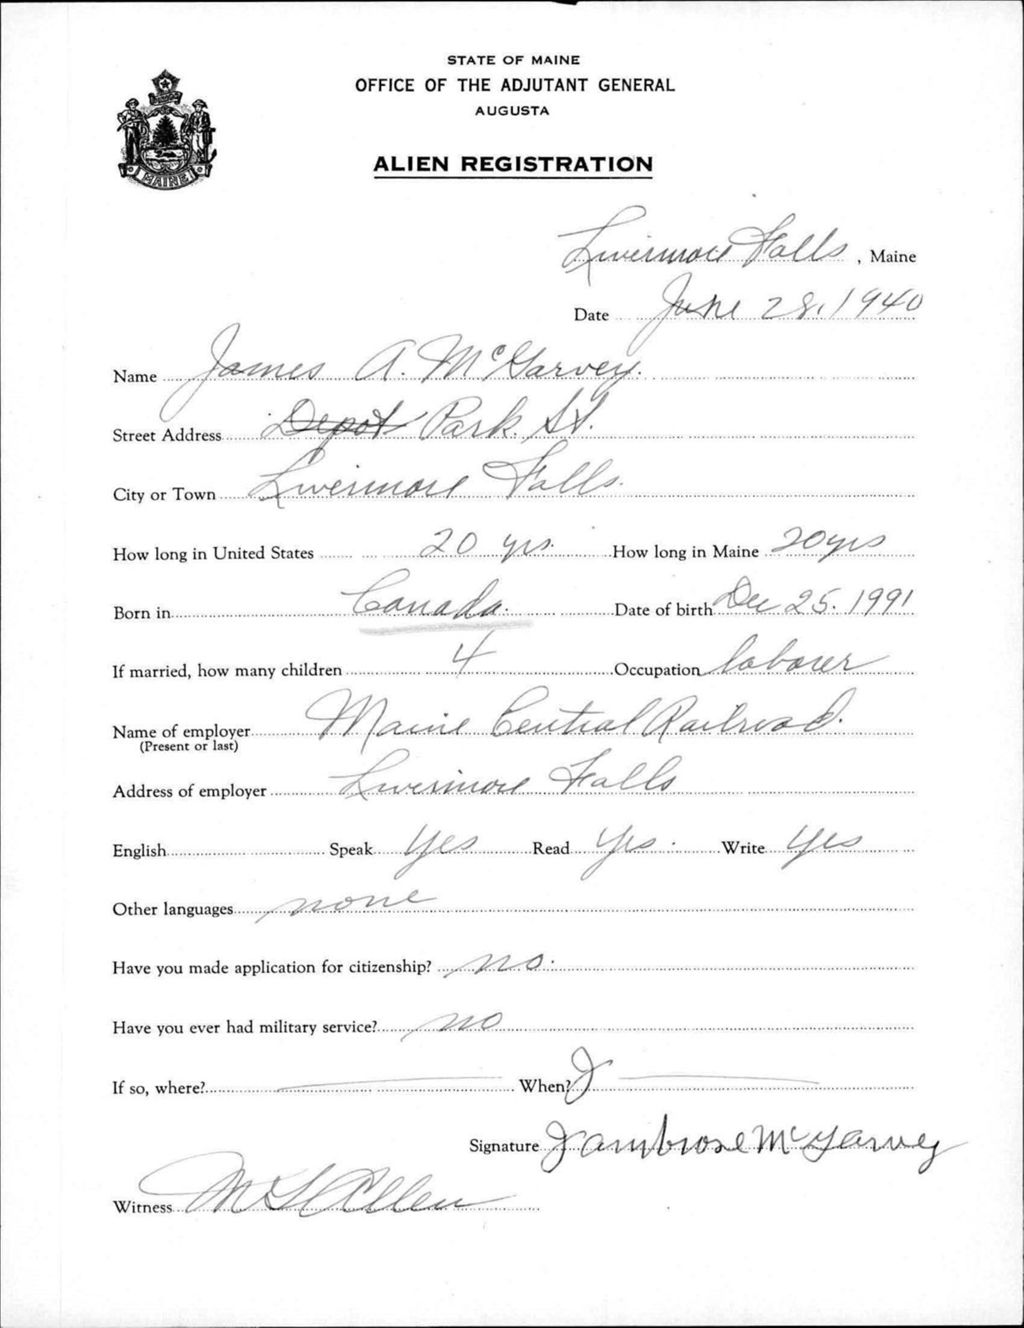 STATE OF MAINE
OFFICE OF THE ADJUTANT GENERAL
AUGUSTA
MAINE
ALIEN REGISTRATION
Livermore Falls, Maine
Date June 28, 1940
Name James A. McGarvey.
Street Address Depot Park St.
City or Town Livermore Falls.
How long in United States 20 yrs. How long in Maine 20 yrs
Born in Canada. Date of birth Dec 25. 1991
If married, how many children 4 Occupation laborer
Name of employer Maine Central Railroad.
(Present or last)
Address of employer Livermore Falls
English Speak Yes Read Yes. Write Yes
Other languages none
Have you made application for citizenship? no.
Have you ever had military service? no
If so, where? When? J
Signature J Ambrose McGarvey
Witness Allen